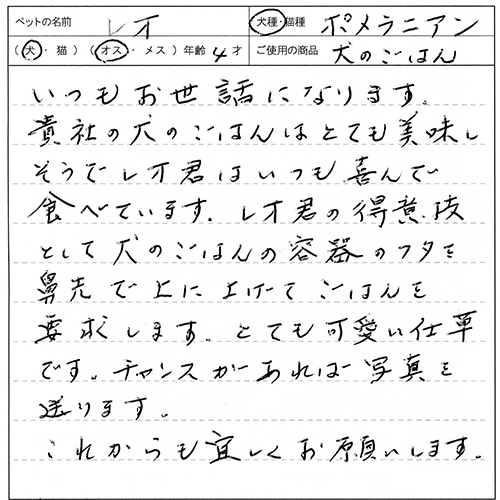 ペットの名前 レオ 犬種・猫種 ポメラニアン
(犬・猫)(オス・メス)年齢 4才 ご使用の商品 犬のごはん
いつもお世話になります。
貴社の犬のごはんはとても美味し
そうでレオ君はいつも喜んで
食べています。レオ君の得意技
として犬のごはんの容器のフタを
鼻先で上に上げてごはんを
要求します。とても可愛い仕草
です。チャンスがあれば写真を
送ります。
これからも宜しくお願いします。